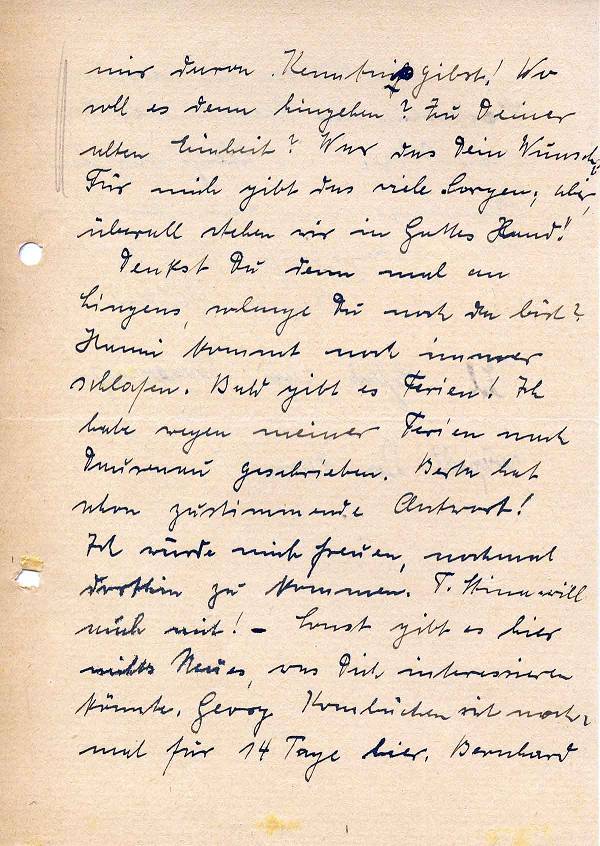 mir davon Kenntnis gibst! Wo
soll es denn hingehen? Zu Deiner
alten Einheit? War das Dein Wunsch?
Für mich gibt das viele Sorgen, aber
überall stehen wir in Gottes Hand!
Denkst Du denn mal an
Lingens, solange Du noch da bist?
Hanni kommt noch immer
schlafen. Bald gibt es Ferien! Ich
habe wegen meiner Ferien nach
Dausenau geschrieben. Berta hat
schon zustimmende Antwort!
Ich würde mich freuen, nochmal
dorthin zu kommen. T. will
auch mit! – Sonst gibt es hier
nichts Neues, was Dich interessieren
könnte. Georg ist noch-
mal für 14 Tage hier. Bernhard